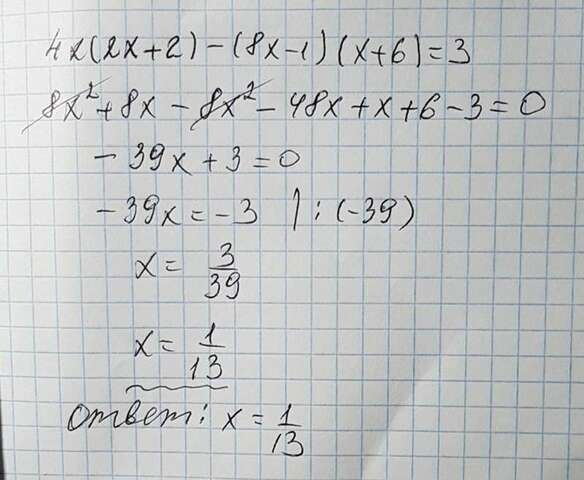 4x(2x+2)-(8x-1)(x+6)=3
8x²+8x-8x²-48x+x+6-3=0
-39x+3=0
-39x=-3 | : (-39)
x= 3/39
x= 1/13
Ответ: x= 1/13